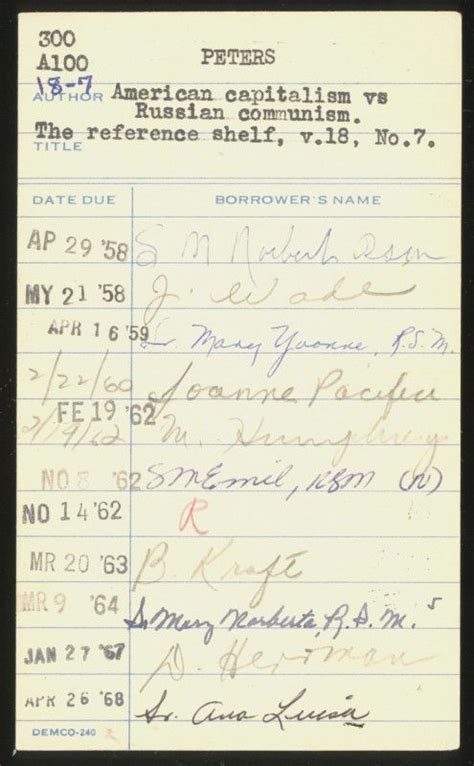 300
A100 PETERS
18-7
AUTHOR American capitalism vs
Russian communism.
The reference shelf, v.18, No.7.
TITLE
DATE DUE BORROWER'S NAME
AP 29 '58 S M Norbert RSM
MY 21 '58 J. Wade
APR 16 '59 Sr. Mary Yvonne, R.S.M.
2/22/60 Joanne Pacifici
FE 19 '62
2/19/62 M. Humphrey
NO 8 '62 SM Emil, RSM (N)
NO 14 '62 R
MR 20 '63 B. Kraft
MR 9 '64 Sr. Mary Norberta, R.S.M. 5
JAN 27 '67 D. Herrman
APR 26 '68 Sr. Ana Luisa
DEMCO-240